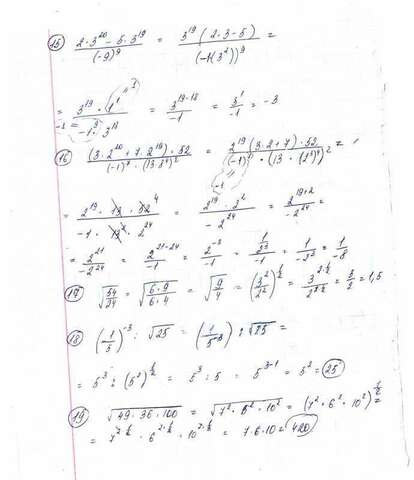 15 (2·3²⁰ - 5·3¹⁹)/(-9)⁹ = 3¹⁹(2·3-5)/(-1(3²))⁹ =
= 3¹⁹·1¹/-1·3¹⁸ = 3¹⁹⁻¹⁸/-1 = 3¹/-1 = -3
16 (3·2²⁰+7·2¹⁹)·52/(13·8⁴)² = 2¹⁹(3·2+7)·52/
= 2¹⁹·13·52⁴/-1·13²·2²⁴ = = 2¹⁹⁺²/-2²⁴ =
= 2²¹/-2²⁴ = 2²¹⁻²⁴/-1 = 2⁻³/-1 = = 1/-2³ = 1/-8
17 √(54/24) = √(6·9/6·4) = √(9/4) = (3²/2²)^½ = = 3/2 = 1,5
18 (1/5)⁻³ : √25 = : √25 =
= 5³ : (5²)^½ = 5³ : 5 = 5³⁻¹ = 5² = 25
19 √(49·36·100) = √(7²·6²·10²) = (7²·6²·10²)^½ =
= 7^(2·½) · 6^(2·½) · 10^(2·½) = 7·6·10 = 420